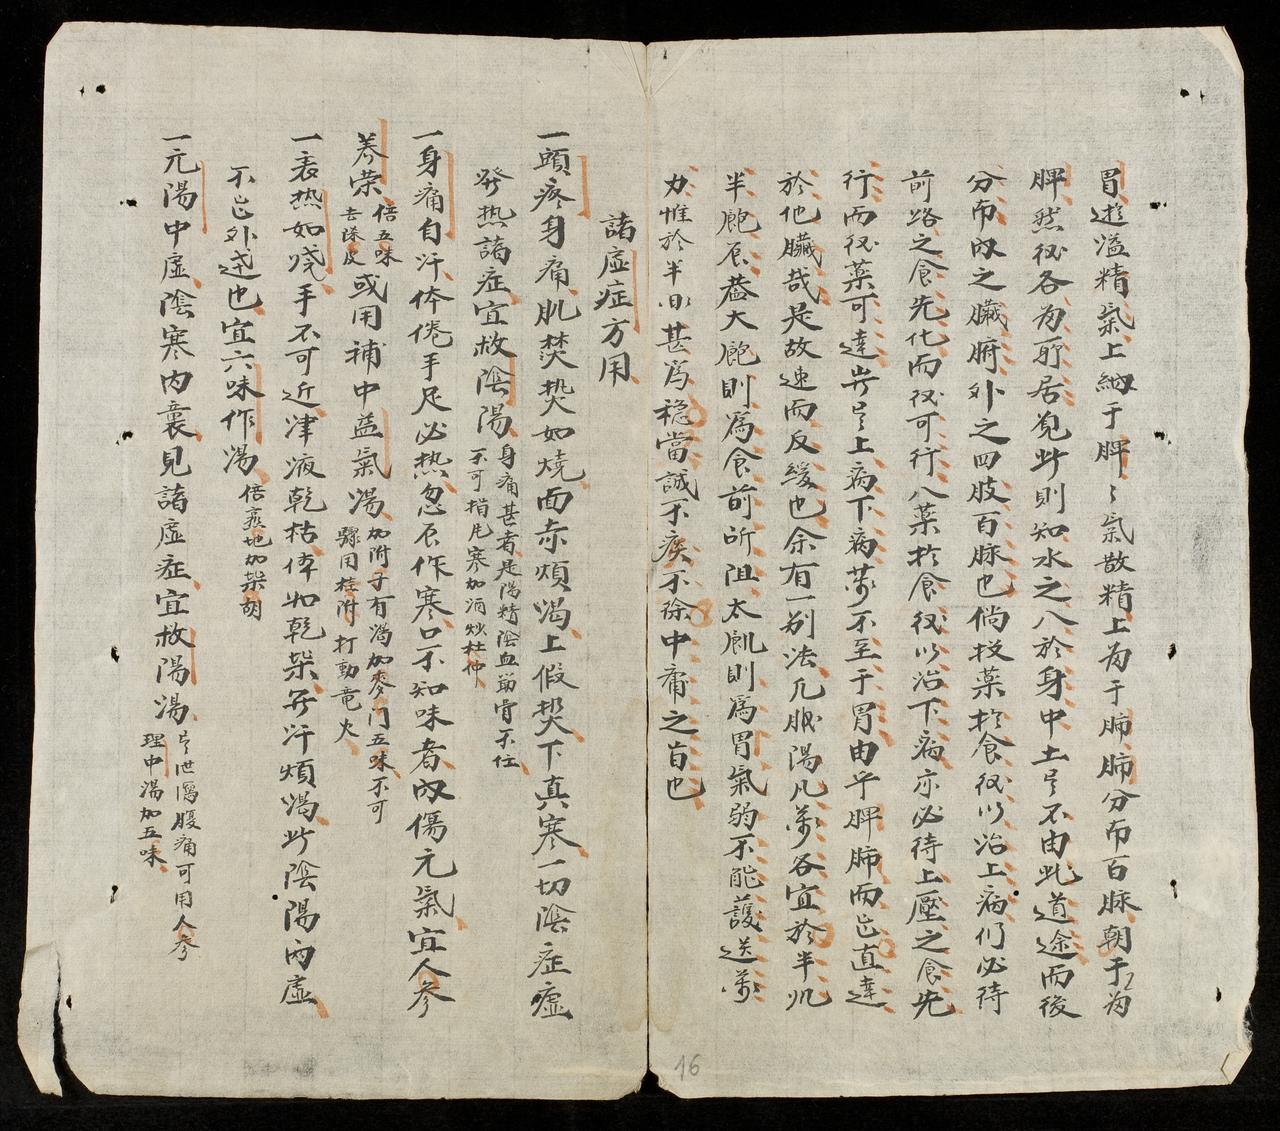 胃遊溢精氣上䋈于脾〻氣散精上為于肺肺分布百脉朝于为
脾然後各為所居見此則知水之入於身中土㞢不由此道途而後
分布内之臟腑外之四肢百脉也倘投藥扵食後以治上病们必待
前路之食先化而後可行入藥扵食後以治下病亦必待上壓之食先
行而後藥可達㞢上病下病葯不至于胃由乎脾肺而𠰺直達
於他臟哉是故速而反緩也余有一别法凡服湯凡葯各宜於半飢
半飽辰葢大飽則爲食前所阻太飢則爲胃氣弱不能護送葯
力惟於半間甚爲穏當誠不疾不徐中庸之旨也
諸虛症方用
一頭疼身痛肌焚𤍠如燒面赤煩渴上假𤍠下真寒一切陰症嘘
發热諸症宜救陰陽 身痛甚者是陽精陰血筋骨不仕
不可 指 尤寒加酒炒杜仲
一身痛自汗体倦手足必热忽辰作寒口不知味者内傷元氣宜人參
养荣 倍五味
去陳皮 或用補中益氣湯 加附子有渴加麥门五味不可
驟用桂附打動竜火
一表热如燒手不可近津液乾枯体如乾柴無汗煩渴此陰陽內虛
不𠰺外迯也宜六味作湯 倍熟地加柴胡
一元陽中虛陰寒內囊見諸虛症宜救陽湯 㞢泄瀉腹痛可用人參
理中湯加五味
16